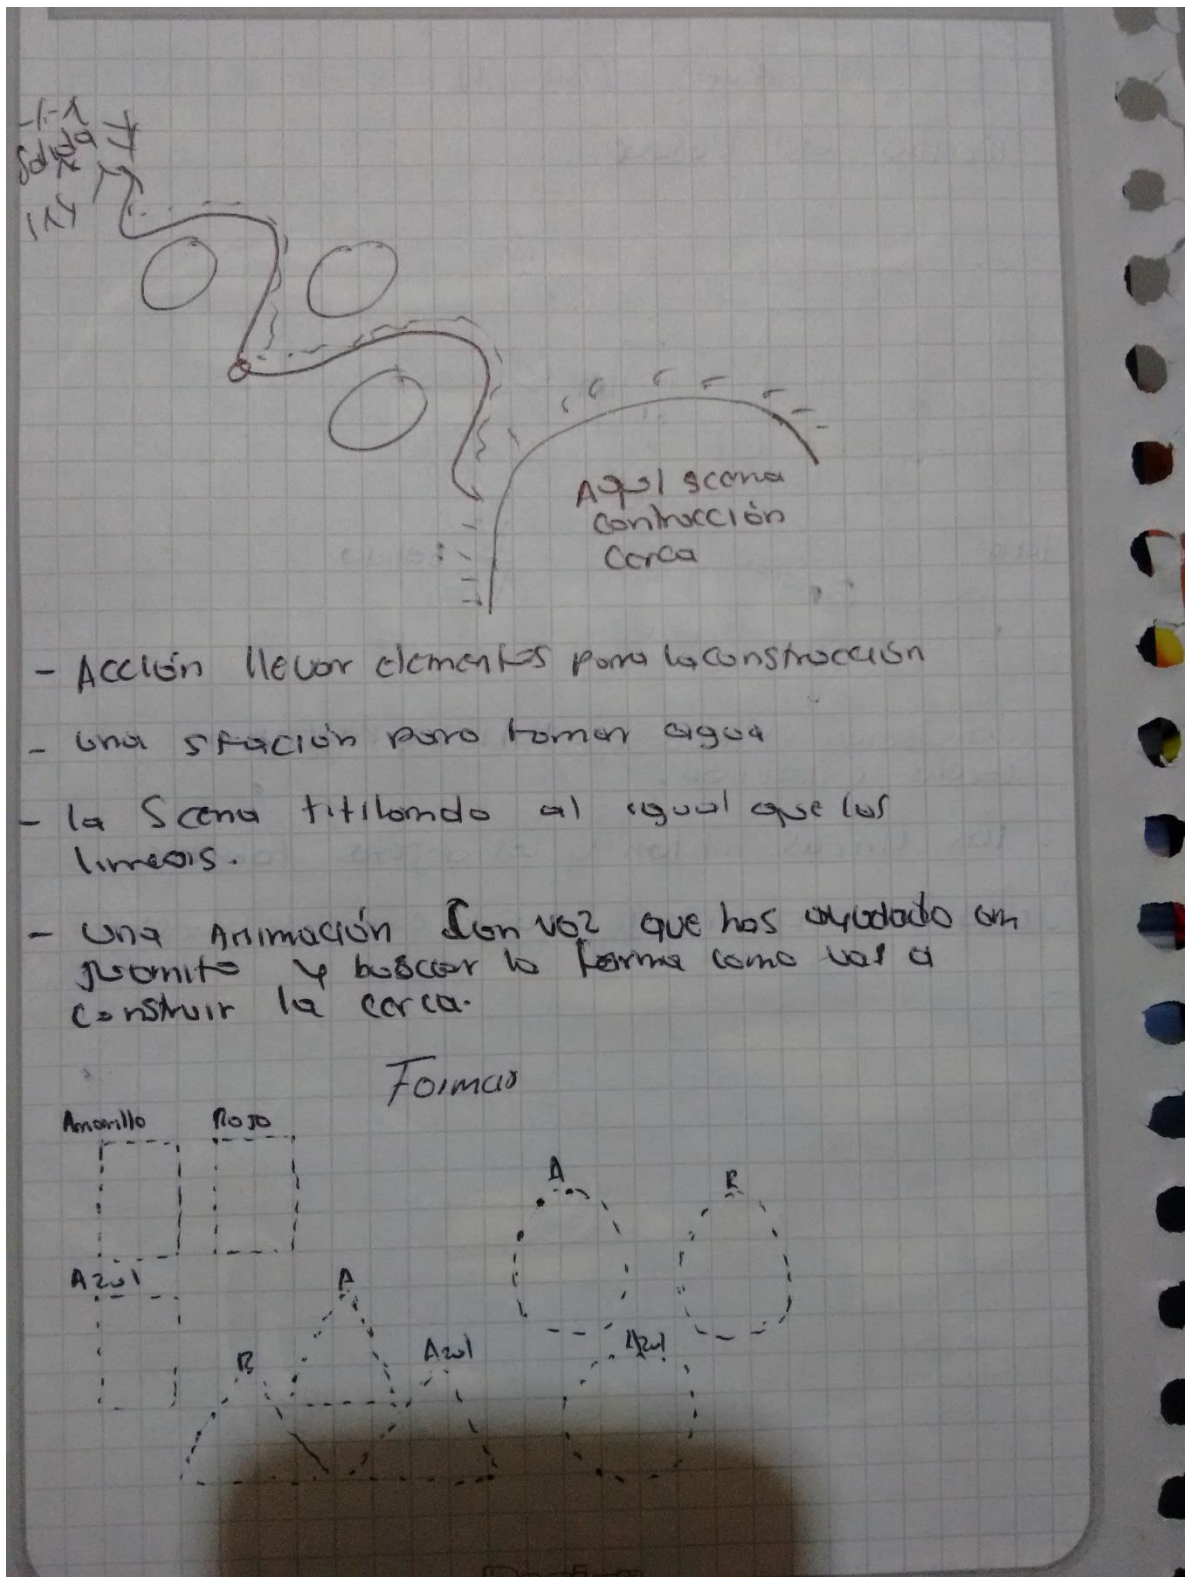 Salida
Aqui scena
contrucción
cerca
- Acción llevar elementos para la construcción
- una stación para tomar agua
- la Scena titilando al igual que las
lineas.
- una Animación Con voz que has ayudado an
Juanito y buscar la forma como vas a
construir la cerca.
Formas
Amarillo Rojo
A R
Azul
A
R Azul
Azul